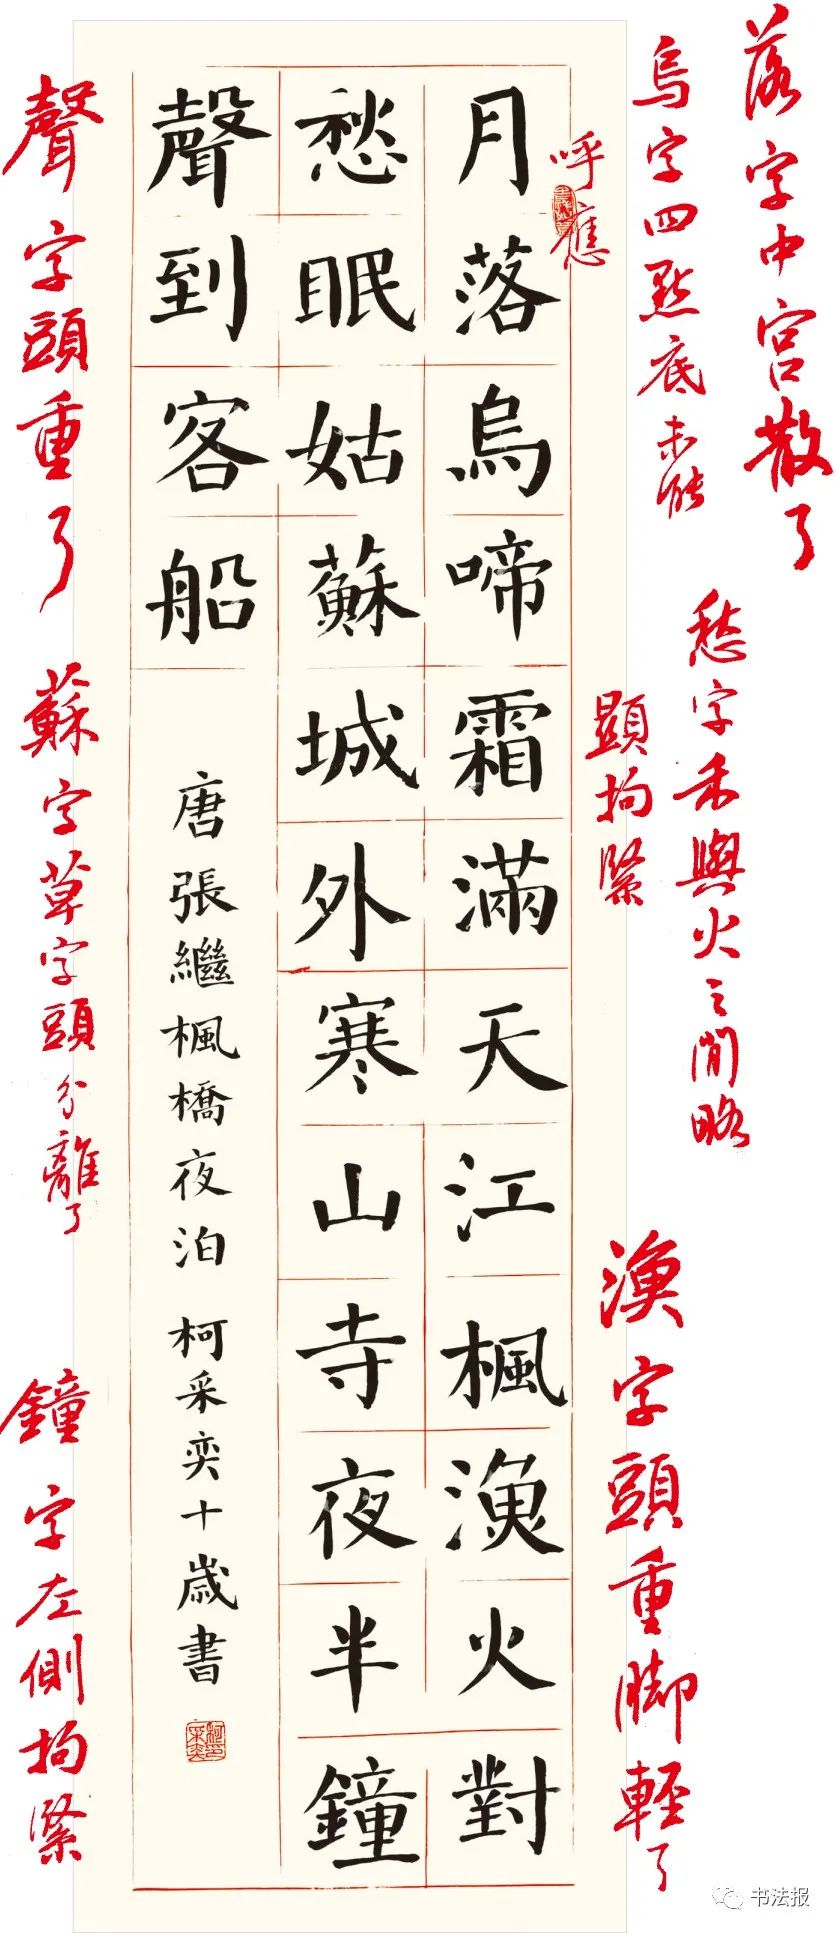 月落烏啼霜滿天江楓漁火對
愁眠姑蘇城外寒山寺夜半鐘
聲到客船
唐張繼楓橋夜泊 柯采奕十歲書
柯采奕印
落字中宮散了
烏字四點底未能
呼應
愁字禾與火之間略
顯拘緊
漁字頭重腳輕了
聲字頭重了
蘇字草字頭分離了
鐘字左側拘緊
书法报